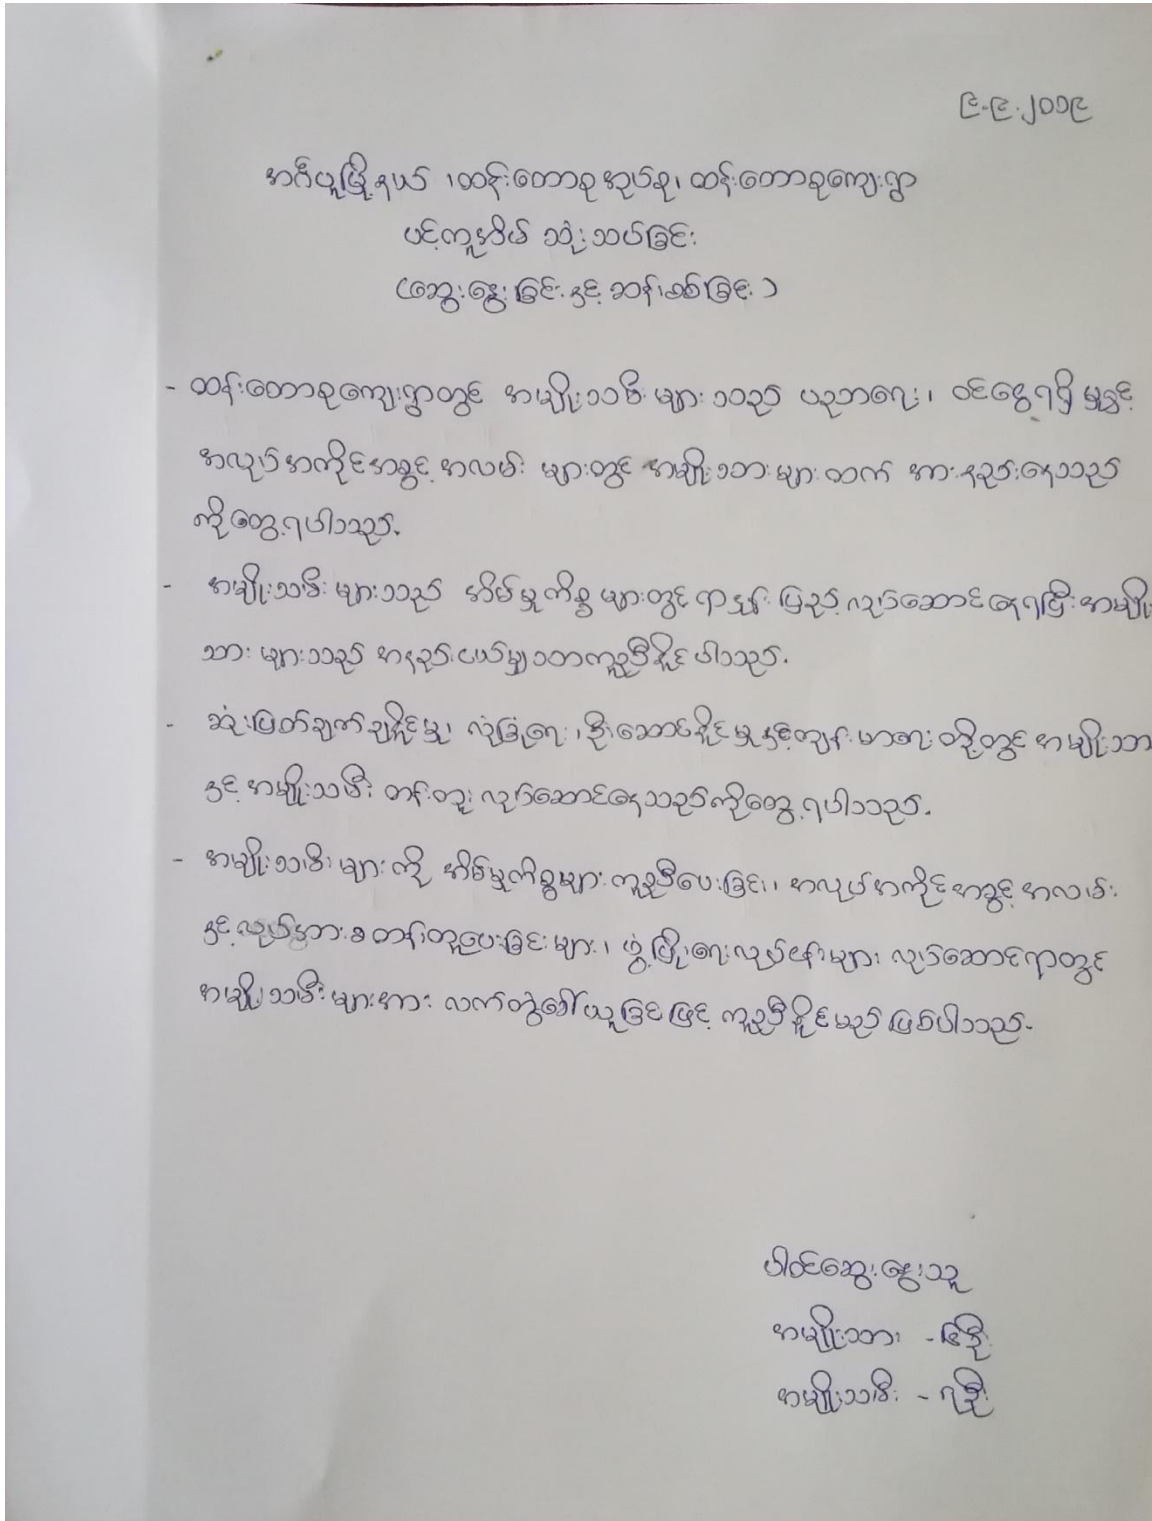 ၉-၉-၂၀၁၉
အင်္ဂပူမြို့နယ် ၊ ထန်းတောစုအုပ်စု ၊ ထန်းတောစုကျေးရွာ
ပင့်ကူအိမ် သုံးသပ်ခြင်း
(ဆွေးနွေးခြင်းနှင့် ဆန်းစစ်ခြင်း)
- ထန်းတောစုကျေးရွာတွင် အမျိုးသမီးများသည် ပညာရေး၊ ဝင်ငွေရရှိမှုနှင့်
အလုပ်အကိုင်အခွင့်အလမ်း များတွင် အမျိုးသားများထက် အားနည်းနေသည်
ကိုတွေ့ရပါသည်.
- အမျိုးသမီးများသည် အိမ်မှုကိစ္စများတွင် ရာနှုန်းပြည့်လုပ်ဆောင်နေရပြီး အမျိုး
သားများသည် အနည်းငယ်မျှသာကူညီနိုင်ပါသည်.
- ဆုံးဖြတ်ချက်ချနိုင်မှု၊ လုံခြုံရေး၊ ဦးဆောင်နိုင်မှုနှင့်ကျန်းမာရေး တို့တွင် အမျိုးသား
နှင့် အမျိုးသမီး တန်းတူးလုပ်ဆောင်နေသည်ကိုတွေ့ရပါသည်.
- အမျိုးသမီးများကို အိမ်မှုကိစ္စများကူညီပေးခြင်း၊ အလုပ်အကိုင်အခွင့်အလမ်း
နှင့်လုပ်အားခ တန်းတူပေးခြင်းများ၊ ဖွံ့ဖြိုးရေးလုပ်ငန်းများ လုပ်ဆောင်ရာတွင်
အမျိုးသမီးများအား လက်တွဲခေါ်ယူခြင်းဖြင့် ကူညီနိုင်မည်ဖြစ်ပါသည်.
ပါဝင်ဆွေးနွေးသူ
အမျိုးသား - ၆ဦး
အမျိုးသမီး - ၇ဦး